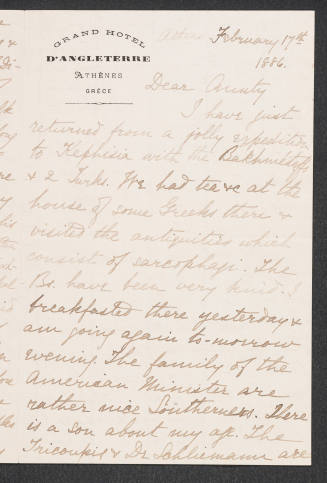 GRAND HOTEL
D'ANGLETERRE
ATHÈNES
GRÈCE
February 17th
1886.
Dear Aunty
I have just
returned from a jolly expedition
to Kephisia with the Bakhmeteffs
& 2 Turks. We had tea &c at the
house of some Greeks there &
visited the antiquities which
consist of sarcophagi. The
Bs. have been very kind. I
breakfasted there yesterday &
am going again to-morrow
evening. The family of the
American Minister are
rather nice Southerners. There
is a son about my age. The
Tricoupis & Dr Schliemann are